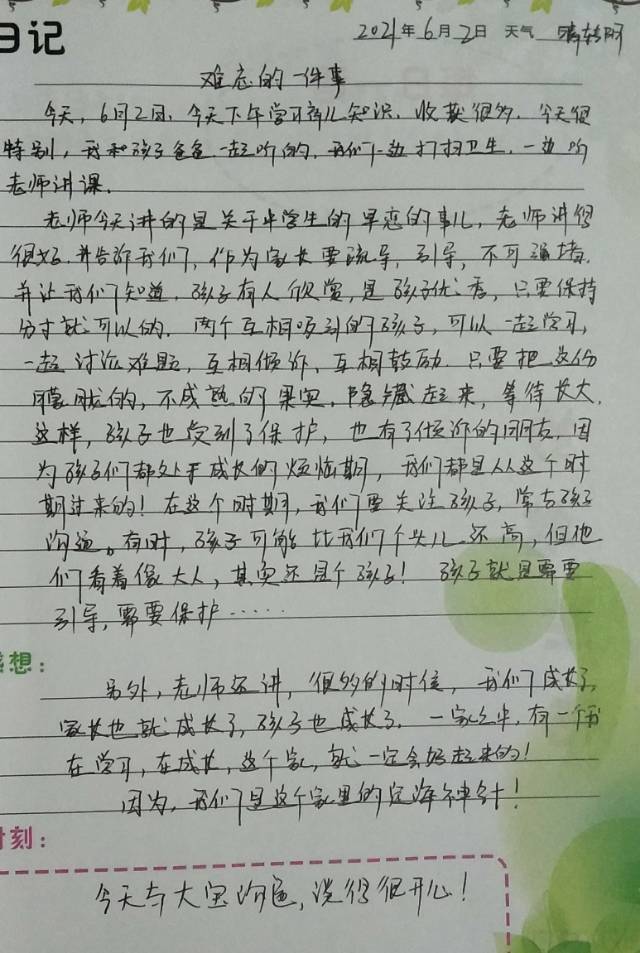 日记 2021年6月2日 天气 晴转阴
难忘的一件事
今天，6月2日，今天下午学习育儿知识，收获很多。今天很
特别，我和孩子爸爸一起听的，我们一边打扫卫生，一边听
老师讲课。
老师今天讲的是关于中学生的早恋的事儿，老师讲得
很好，并告诉我们，作为家长要疏导，引导，不可强堵。
并让我们知道，孩子有人欣赏，是孩子优秀，只要保持
分寸就可以的。两个互相吸引的孩子，可以一起学习，
一起讨论难题，互相倾诉，互相鼓励。只要把这份
朦胧的，不成熟的果实，隐藏起来，等待长大。
这样，孩子也受到了保护，也有了倾诉的朋友，因
为孩子们都处于成长的烦恼期，我们都是从这个时
期过来的！在这个时期，我们要关注孩子，常与孩子
沟通。有时，孩子可能比我们个头儿还高，但他
们看着像大人，其实还是个孩子！孩子就是需要
引导，需要保护……
感想：
另外，老师还讲，很多的时候，我们成长了，
家长也就成长了，孩子也成长了。一家之中，有一个我
在学习，在成长，这个家，就一定会好起来的！
因为，我们是这个家里的定海神针！
时刻：
今天与大宝沟通，谈得很开心！